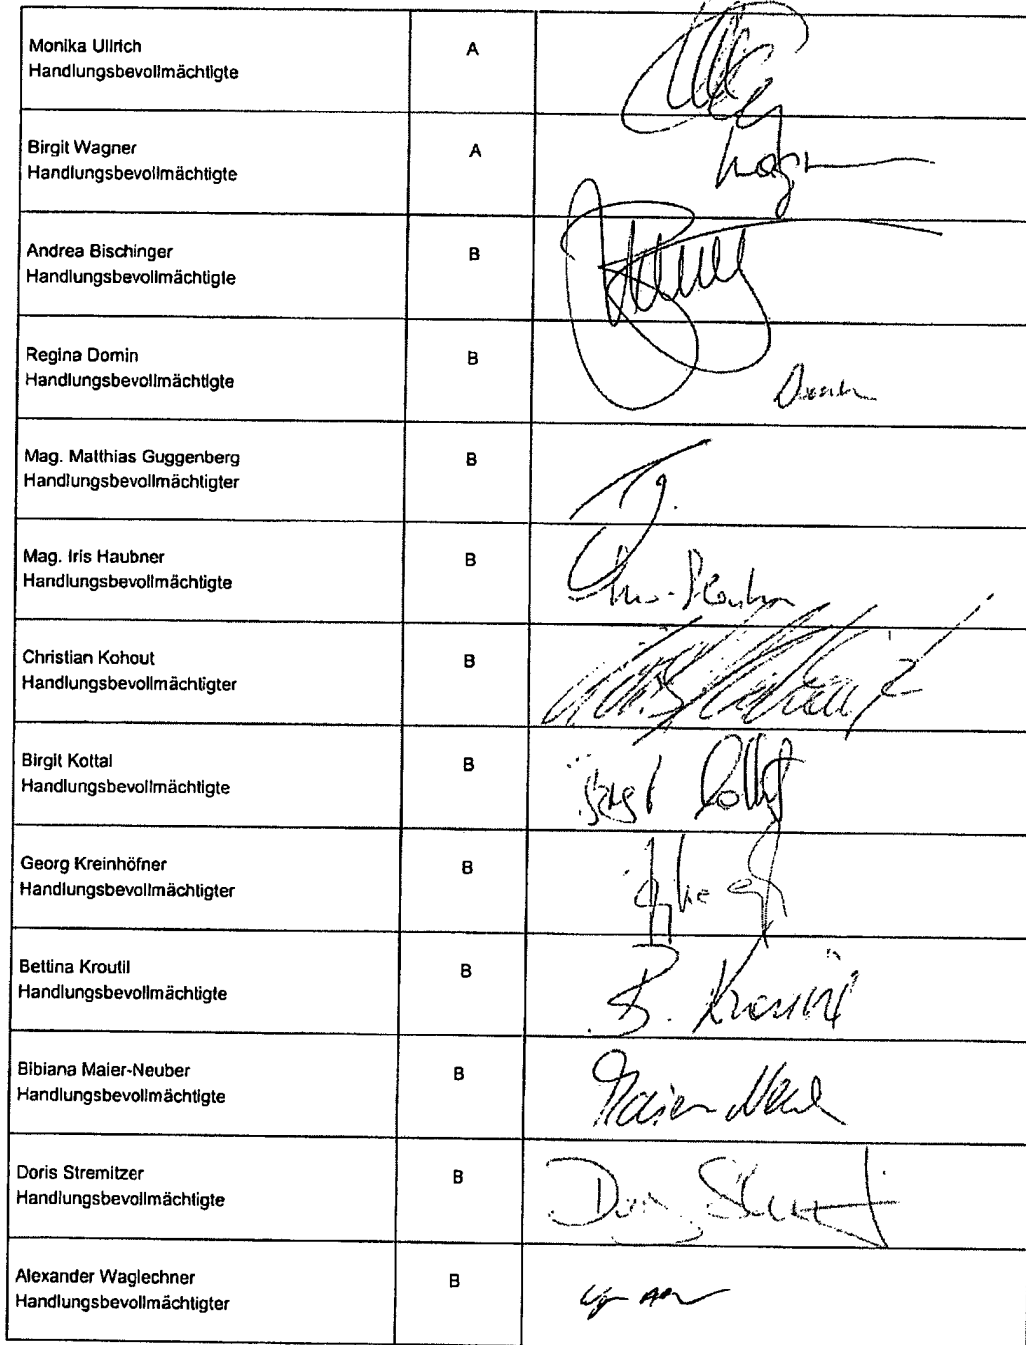 Monika Ullrich A
Handlungsbevollmächtigte
Birgit Wagner A
Handlungsbevollmächtigte
Andrea Bischinger B
Handlungsbevollmächtigte
Regina Domin B
Handlungsbevollmächtigte
Mag. Matthias Guggenberg B
Handlungsbevollmächtigter
Mag. Iris Haubner B
Handlungsbevollmächtigte
Christian Kohout B
Handlungsbevollmächtigter
Birgit Kottal B
Handlungsbevollmächtigte
Georg Kreinhöfner B
Handlungsbevollmächtigter
Bettina Kroutil B
Handlungsbevollmächtigte
B. Kroutil
Bibiana Maier-Neuber B
Handlungsbevollmächtigte
Doris Stremitzer B
Handlungsbevollmächtigte
Alexander Waglechner B
Handlungsbevollmächtigter